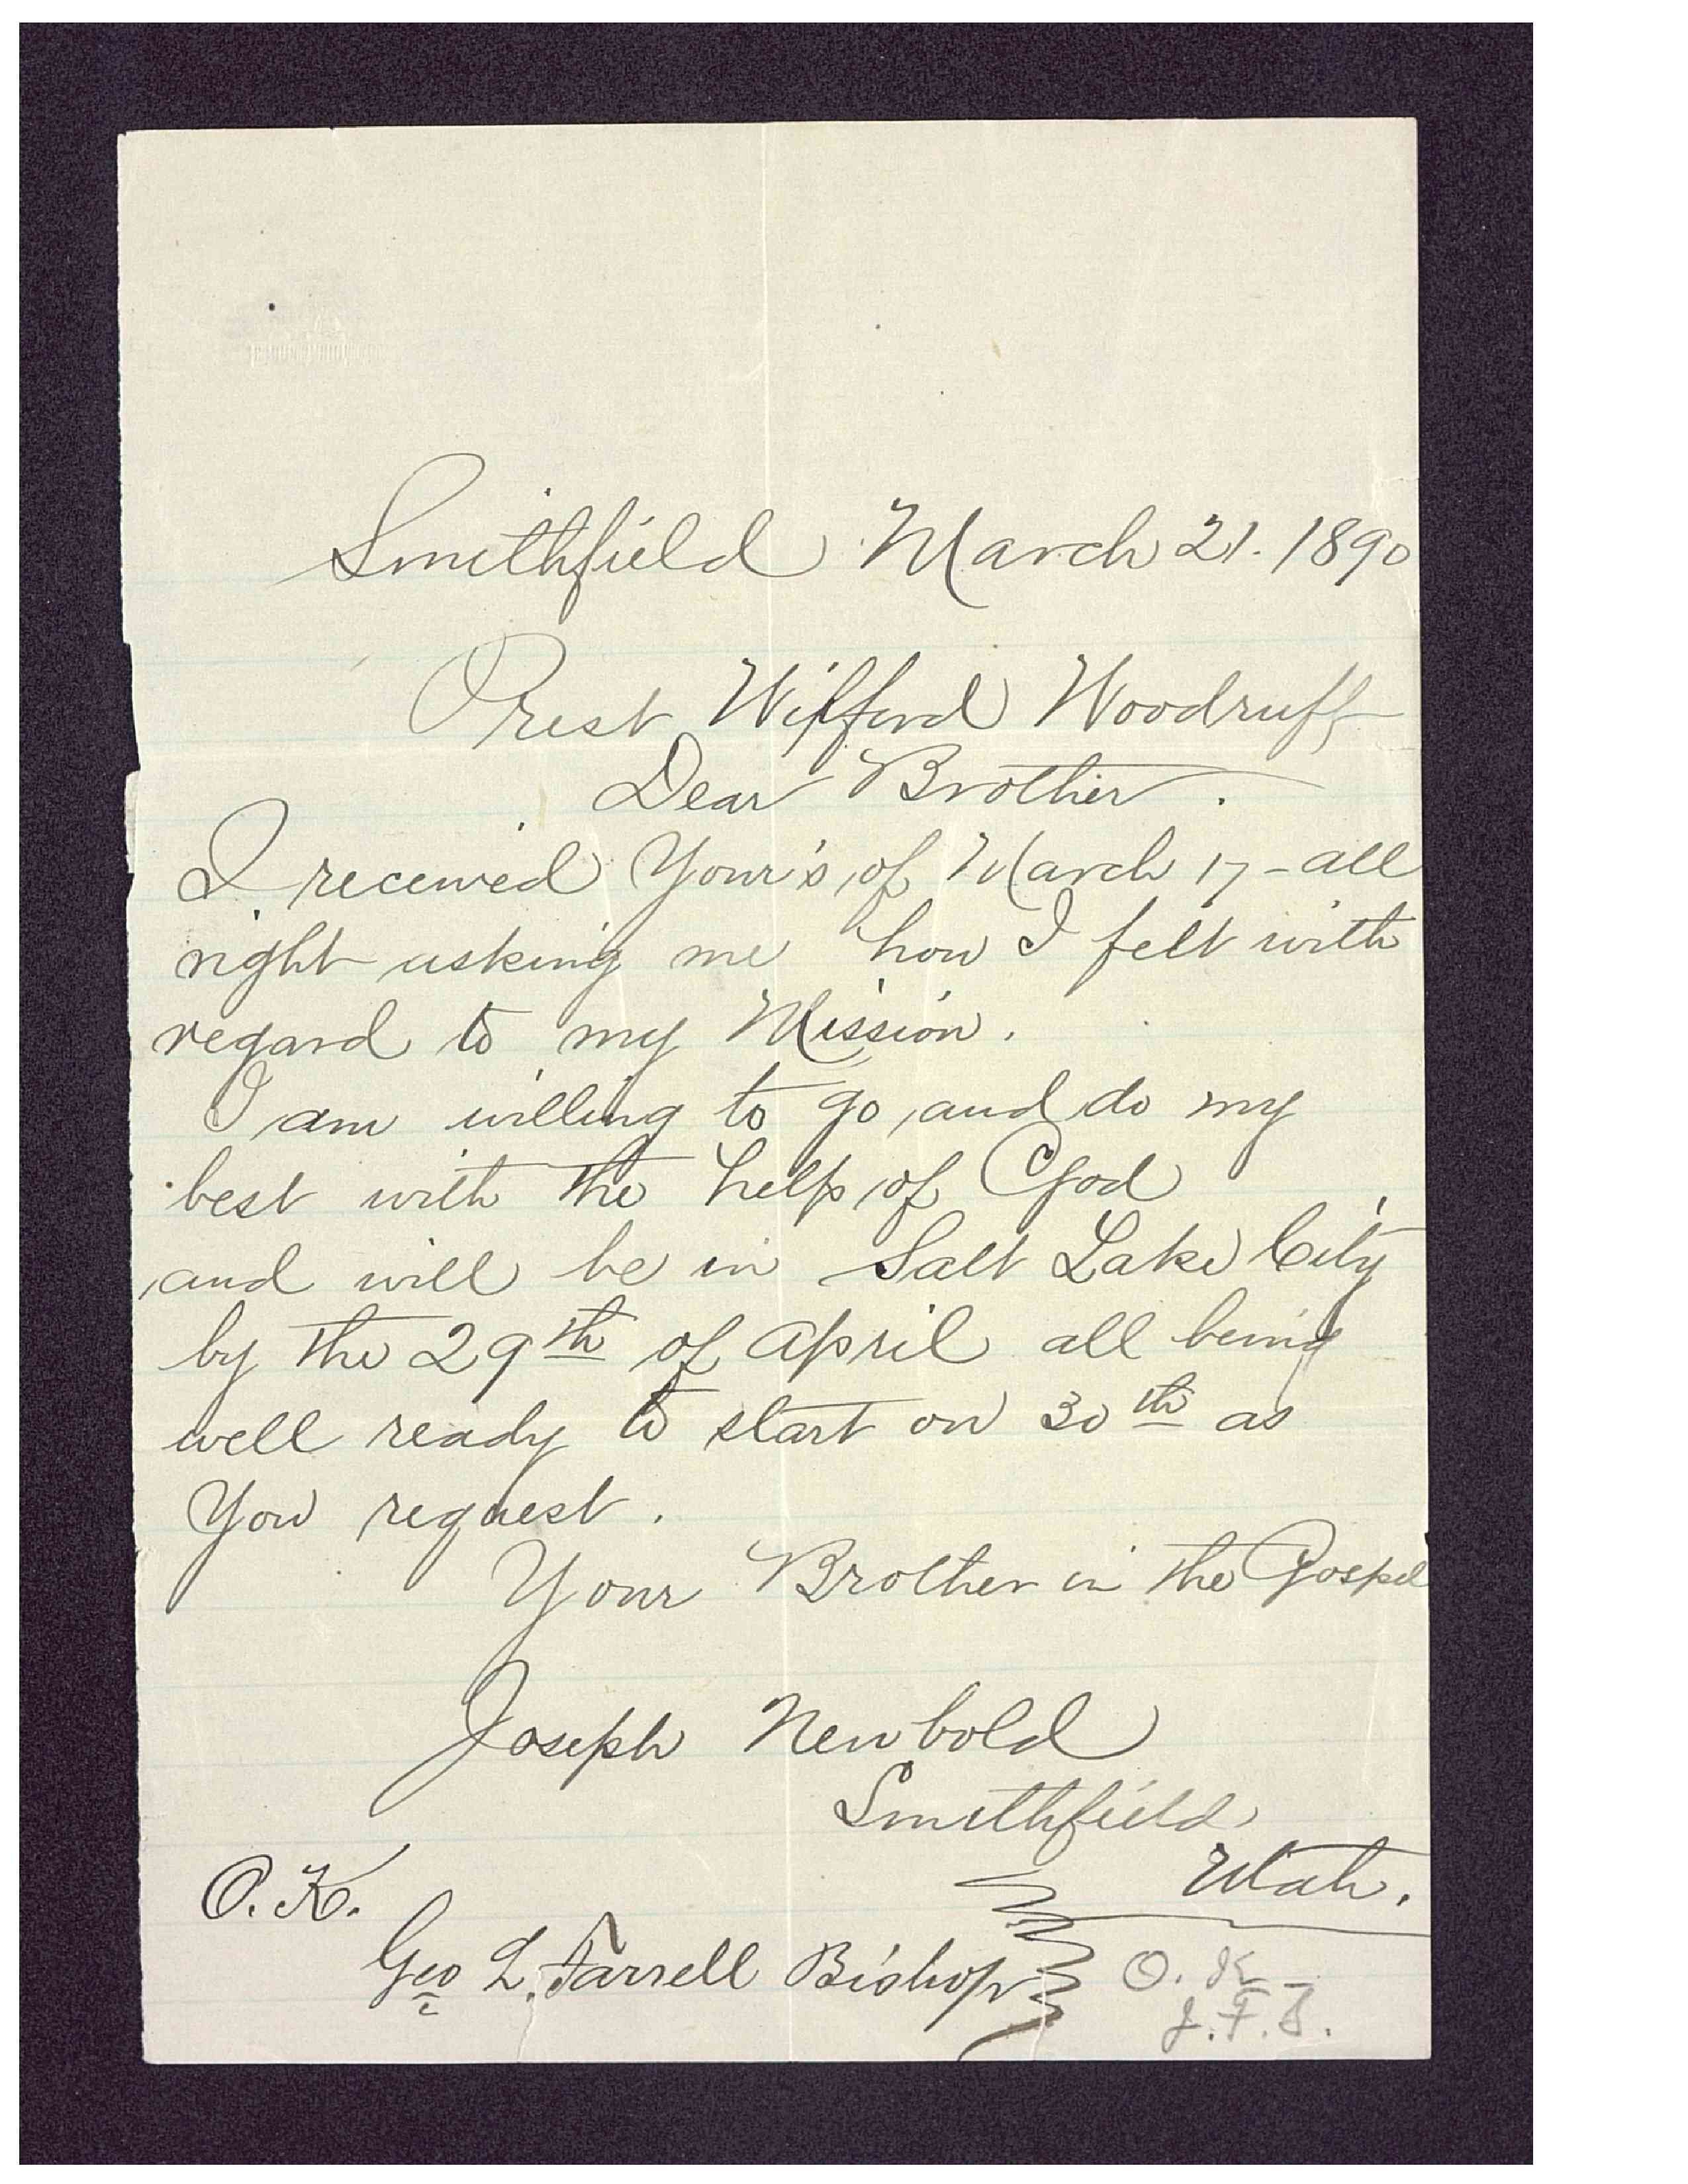 Smithfield March 21. 1890
Prest Wilford Woodruff
Dear Brother.
I received Your's of March 17 - all
right asking me how I felt with
regard to my Mission.
I am willing to go and do my
best with the help of God
and will be in Salt Lake City
by the 29th of April all being
well ready to start on 30th as
You request.
Your Brother in the Gospel
Joseph Newbold
Smithfield
Utah.
O.K.
Geo L. Farrell Bishop
O. K -
J. F. S.